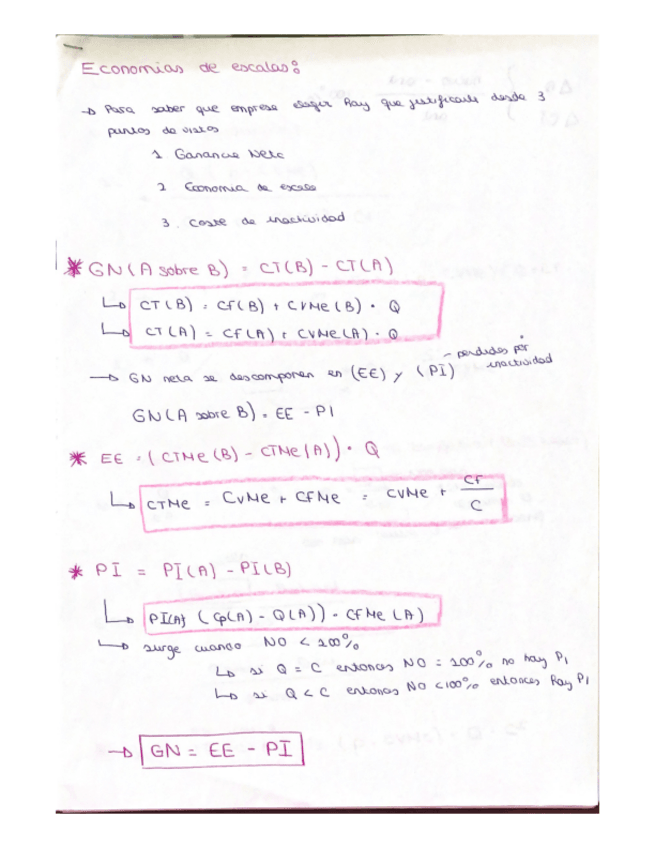 Economias de escalas:
→ Para saber que empresa elegir hay que justificarla desde 3
puntos de vistas
1 Ganancia Neta
2 Economia de escala
3. Coste de inactividad
* GN (A sobre B) = CT(B) - CT(A)
↳ CT(B) = Cf(B) + CVMe(B) · Q
↳ CT(A) = Cf(A) + CVMe(A) · Q
→ GN neta se descomponen en (EE) y (PI) - perdidas por
inactividad
GN(A sobre B) = EE - PI
* EE = (CTMe(B) - CTMe(A)) · Q
↳ CTMe = CVMe + CFMe = CVMe + Cf/C
* PI = PI(A) - PI(B)
↳ PI(A) (Cp(A) - Q(A)) - CFMe(A)
↳ surge cuando NO < 100%
↳ si Q = C entonces NO = 100% no hay PI
↳ si Q < C entonces NO <100% entonces hay PI
→ GN = EE - PI